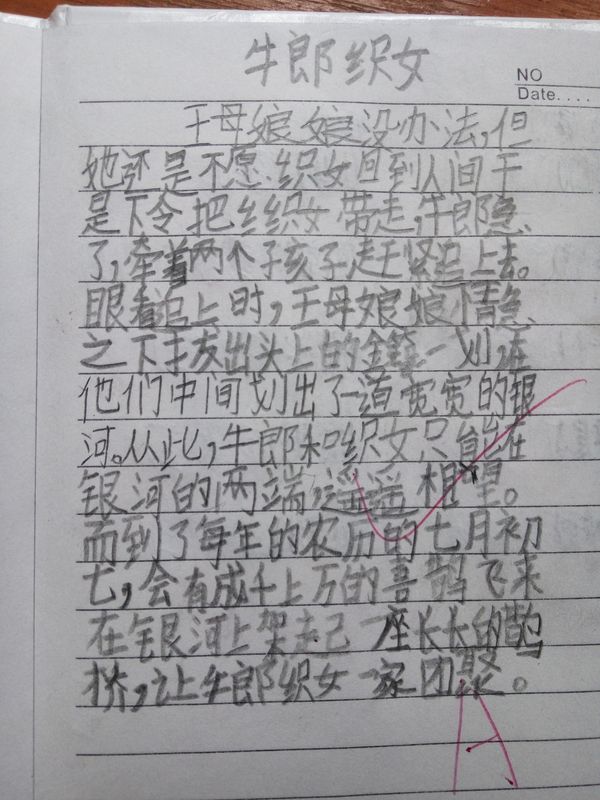 牛郎织女
NO
Date....
王母娘娘没办法,但
她还是不愿织女回到人间于
是下令把织女带走,牛郎急
了,牵着两个孩子赶紧追上去。
眼看追上时,王母娘娘情急
之下拔出头上的金簪一划,在
他们中间划出了一道宽宽的银
河。从此,牛郎和织女只能在
银河的两端,遥遥相望。
而到了每年的农历的七月初
七,会有成千上万的喜鹊飞来
在银河上架起一座长长的鹊
桥,让牛郎织女一家团聚。
A